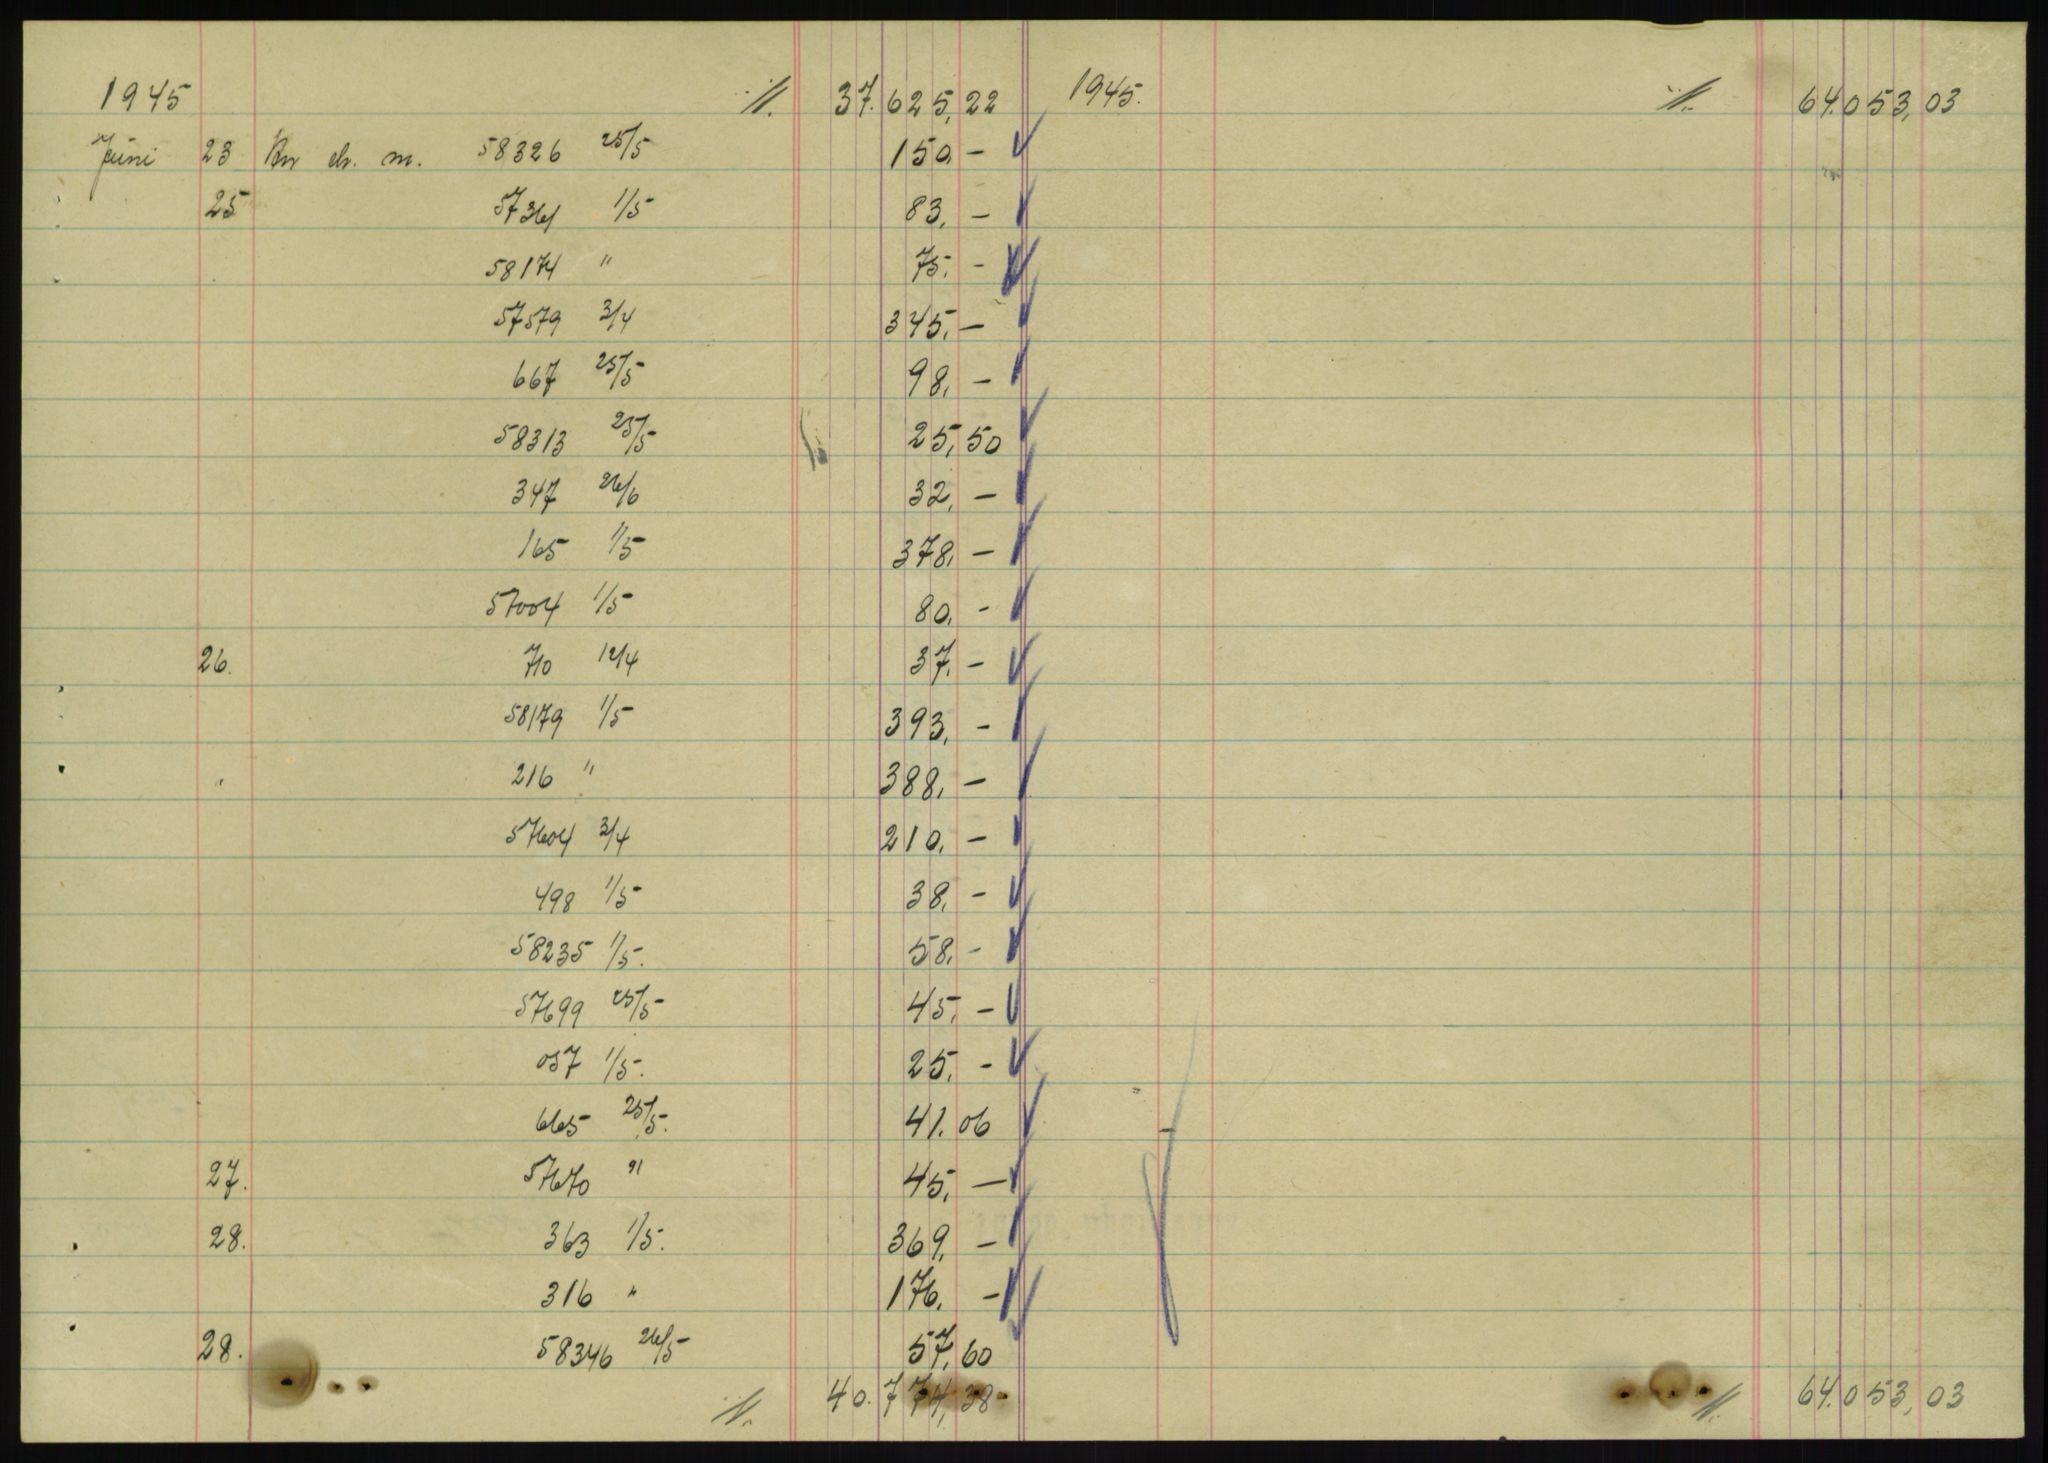 1945 ·/. 37.625,22 1945. ·/. 64.053,03
Juni 23 Kn ch. m. 58326 25/5 150,-
25 57361 1/5 83,-
58174 " 75,-
57579 3/4 345,-
667 25/5 98,-
58313 25/5 25,50
347 26/6 32,-
165 1/5 378,-
57004 1/5 80,-
26. 710 12/4 37,-
58179 1/5 393,-
216 " 388,-
57604 3/4 210,-
498 1/5 38,-
58235 1/5. 58,-
57699 25/5 45,-
057 1/5. 25,-
665 25/5. 41.06
27. 57670 " 45,-
28. 363 1/5. 369,-
316 " 176,-
28. 58346 26/5 57,60
·/. 40.774,38 ·/. 64.053,03